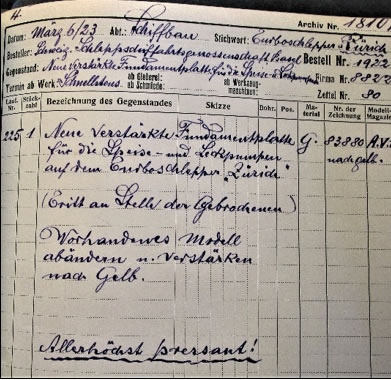 4.
Archiv Nr. 1810
Datum: März 6/23 Abt.: Schiffbau Stichwort: Turboschlepper "Zürich"
Besteller: Schweiz. Schleppschiffahrtsgenossenschaft Basel Bestell Nr. 1922
Gegenstand: Neue verstärkte Fundamentplatte für die Speise- Firma Nr. 8022
Termin ab Werk: Schnellstens ab Gießerei: ab Schmiede: ab Werkzeugmaschinen: Zettel Nr. 80
Lauf. Nr. Stückzahl Bezeichnung des Gegenstandes Skizze Bohr. Pos. Material Nr. der Zeichnung Modell-Magazin
225 1 Neue verstärkte Fundamentplatte G. 83880 A.V.
für die Speise- und Leckpumpen nach gelb.
auf dem Turboschlepper "Zürich"
(Tritt an Stelle der Gebrochenen)
Vorhandenes Modell
abändern u. verstärken
nach Gelb.
Allerhöchst pressant!